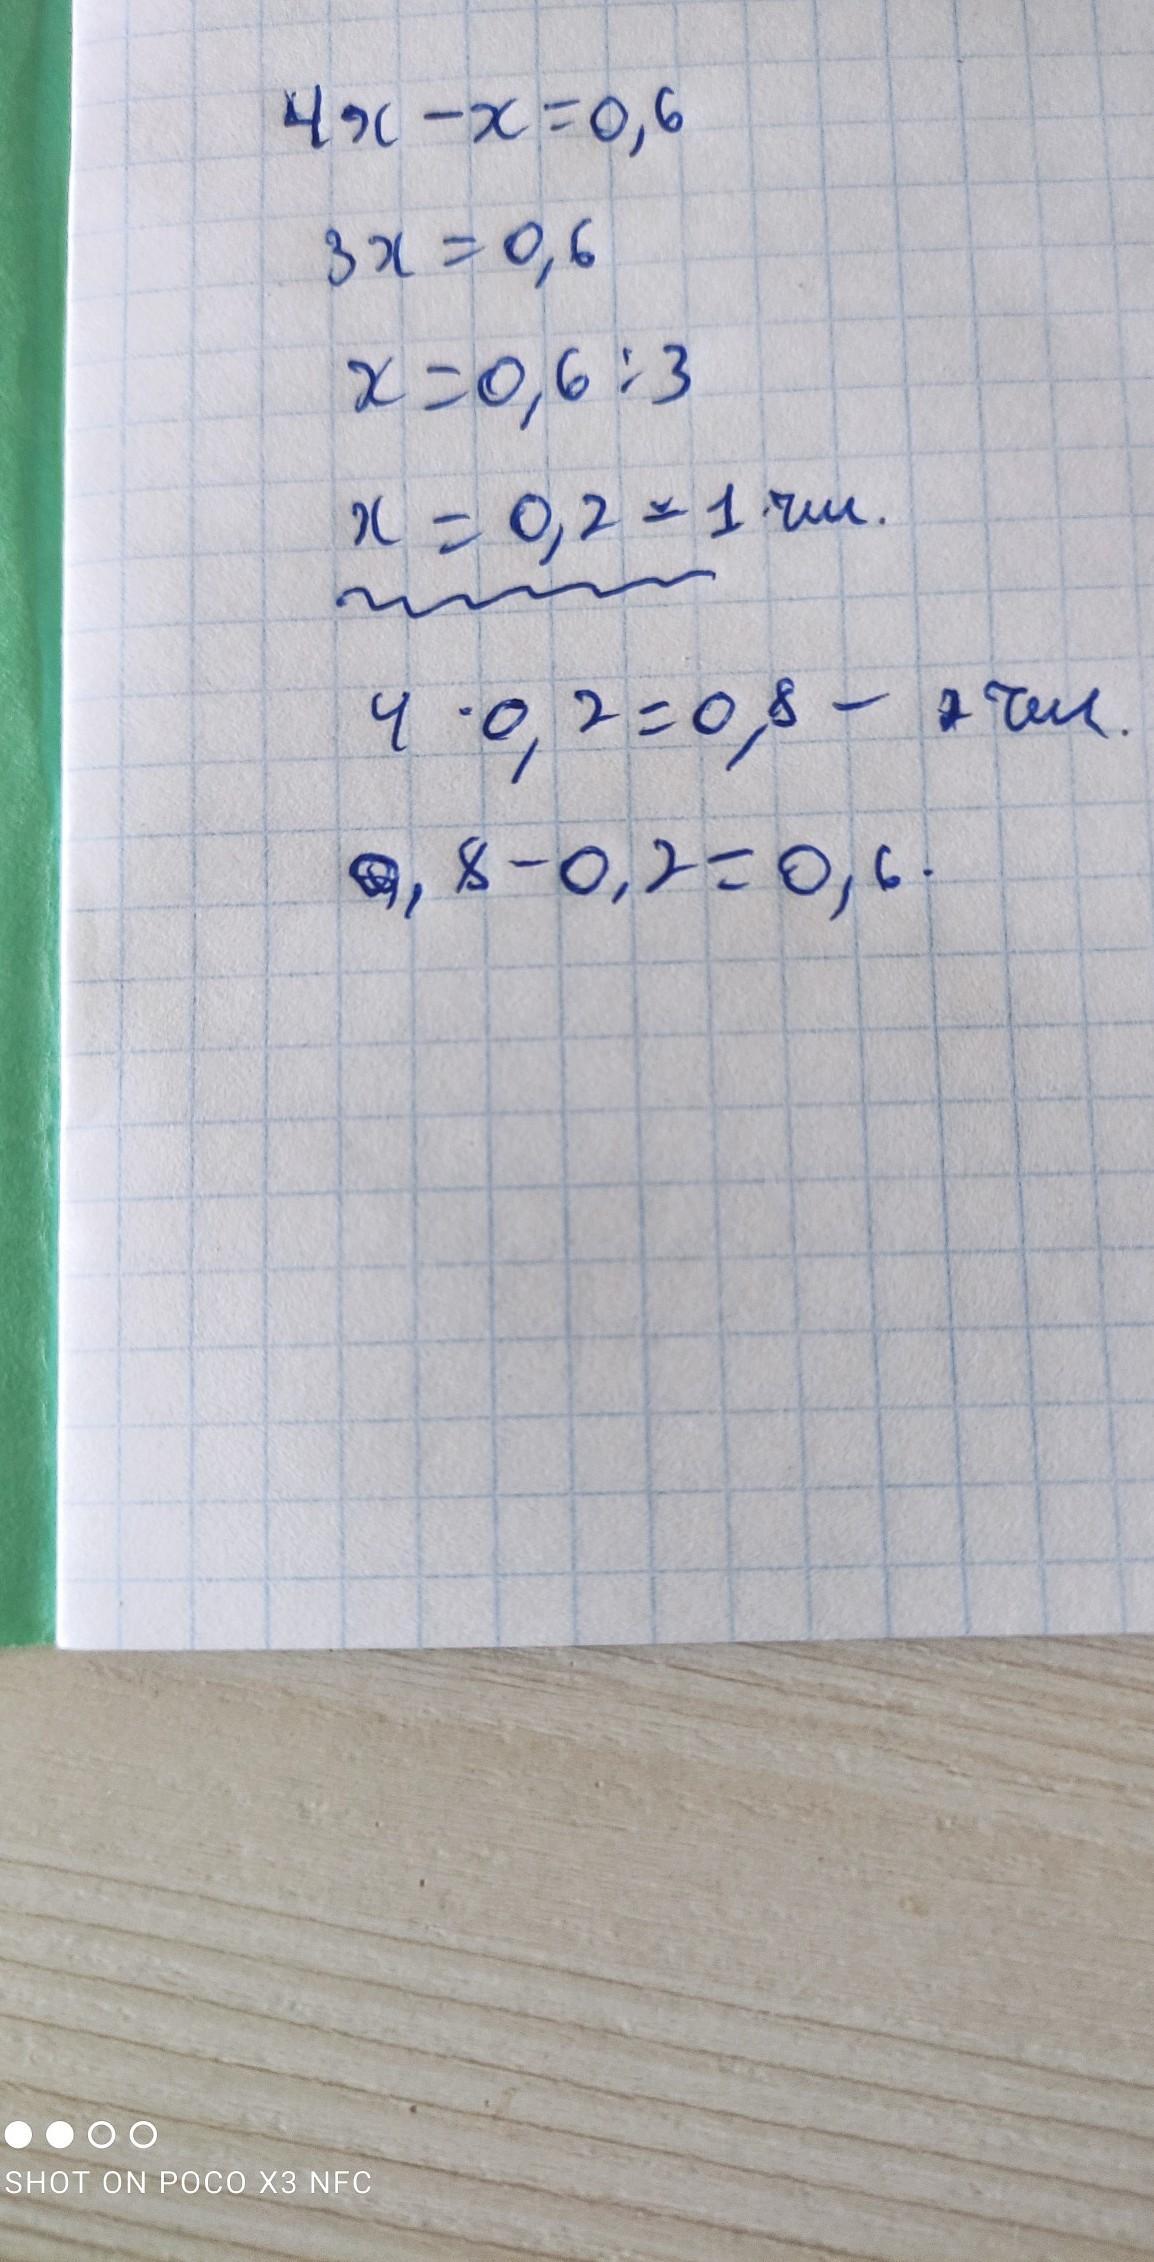 4x - x = 0,6
3x = 0,6
x = 0,6 : 3
x = 0,2 - 1 чис.
4 · 0,2 = 0,8 - 2 чис.
0,8 - 0,2 = 0,6.
SHOT ON POCO X3 NFC